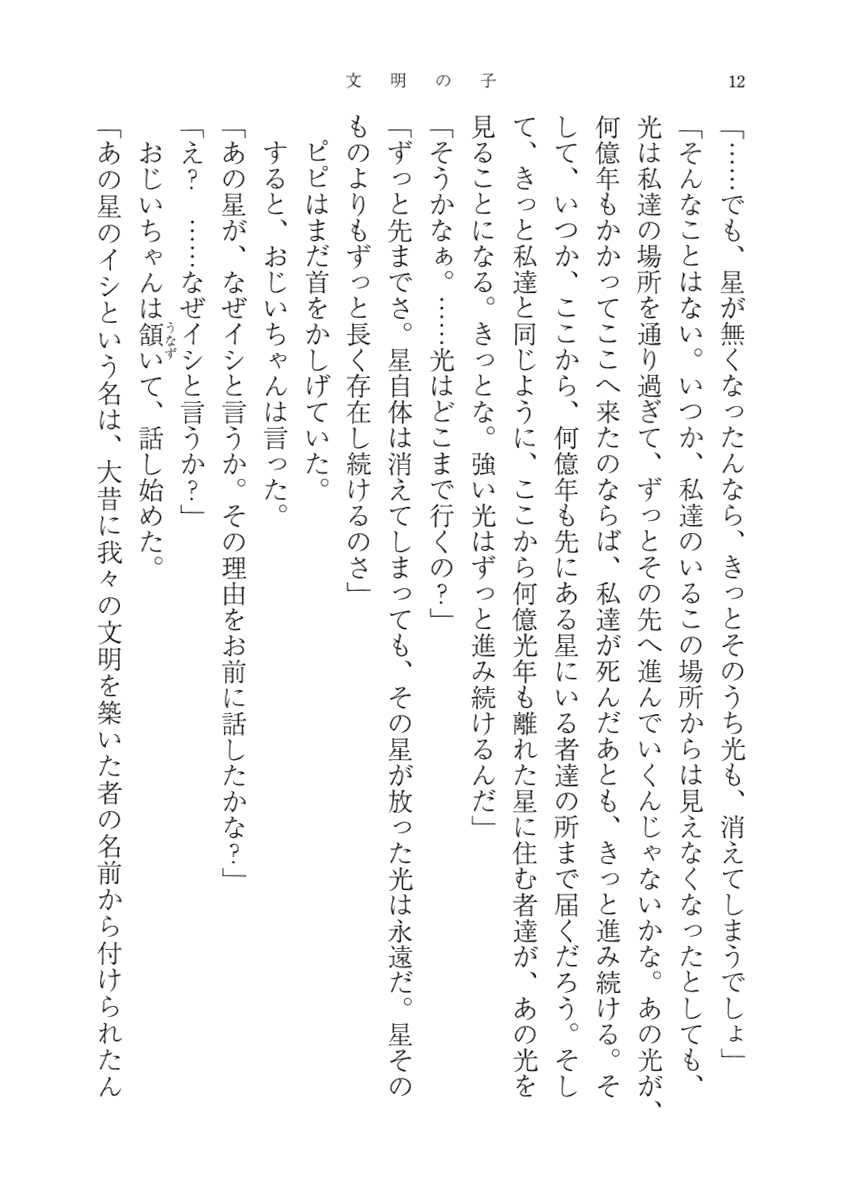 文明の子
12
「……でも、星が無くなったんなら、きっとそのうち光も、消えてしまうでしょ」
「そんなことはない。いつか、私達のいるこの場所からは見えなくなったとしても、
光は私達の場所を通り過ぎて、ずっとその先へ進んでいくんじゃないかな。あの光が、
何億年もかかってここへ来たのならば、私達が死んだあとも、きっと進み続ける。そ
して、いつか、ここから、何億年も先にある星にいる者達の所まで届くだろう。そし
て、きっと私達と同じように、ここから何億光年も離れた星に住む者達が、あの光を
見ることになる。きっとな。強い光はずっと進み続けるんだ」
「そうかなぁ。……光はどこまで行くの?」
「ずっと先までさ。星自体は消えてしまっても、その星が放った光は永遠だ。星その
ものよりもずっと長く存在し続けるのさ」
ピピはまだ首をかしげていた。
すると、おじいちゃんは言った。
「あの星が、なぜイシと言うか。その理由をお前に話したかな?」
「え? ……なぜイシと言うか?」
おじいちゃんは頷うなずいて、話し始めた。
「あの星のイシという名は、大昔に我々の文明を築いた者の名前から付けられたん